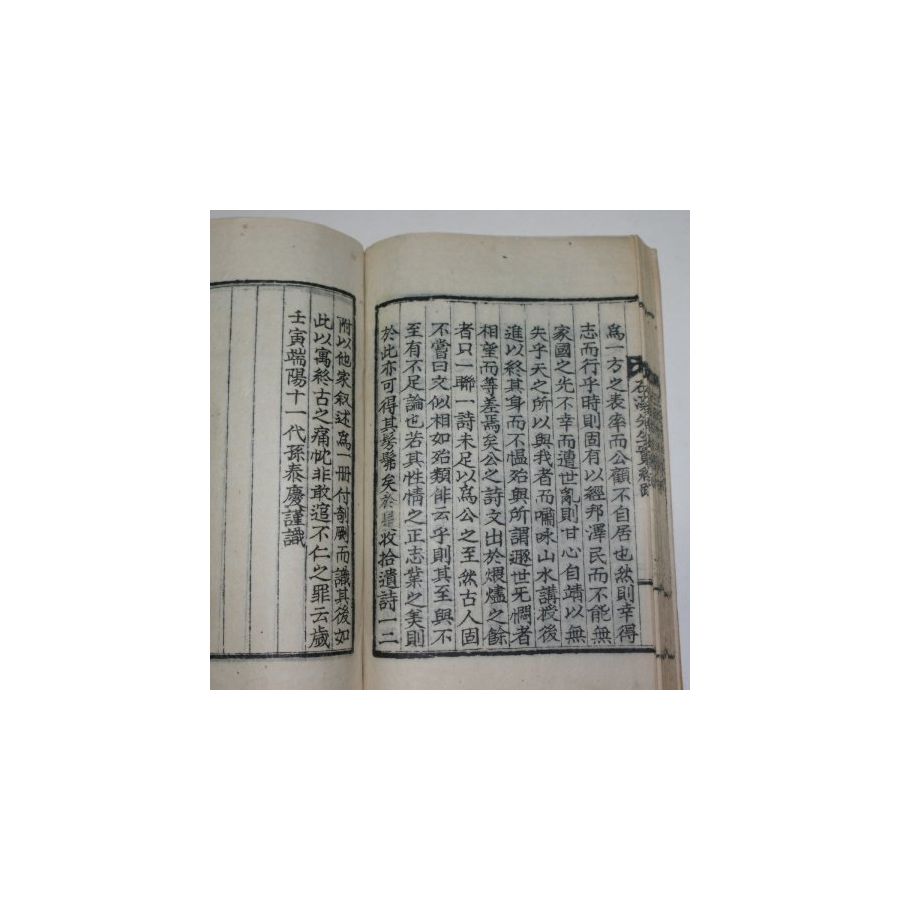 為一方之表率而公顧不自居也然則幸得
志而行乎時則固有以經邦澤民而不能無
家國之先不幸而遭世亂則甘心自靖以無
失乎天之所以與我者而嘯咏山水講授後
進以終其身而不慍殆與所謂遯世旡憫者
相望而等差焉矣公之詩文出於煨燼之餘
者只一聯一詩未足以為公之至然古人固
不嘗曰文似相如殆類俳云乎則其至與不
至有不足論也若其性情之正志業之美則
於此亦可得其髣髴矣於收拾遺詩一二
附以他家叙述為一冊付剞劂而識其後如
此以寓終古之痛忱非敢追不仁之罪云歲
壬寅端陽十一代孫泰慶謹識
先生實紀